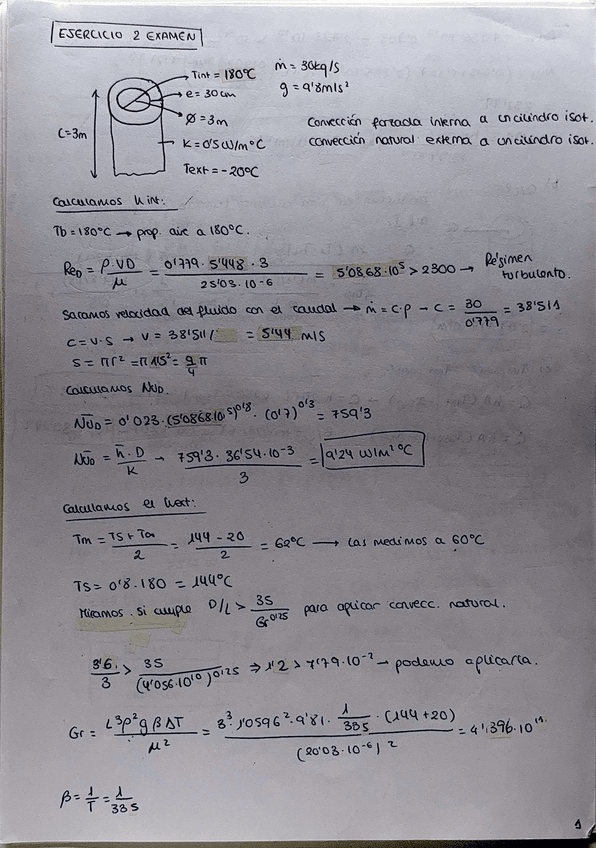 EJERCICIO 2 EXAMEN
Tint = 180ºC
ṁ = 30kg/s
e = 30cm
g = 9'8m/s²
Ø = 3m
Convección forzada interna a un cilindro isot.
L=3m
K = 0'5 W/mºC
convección natural externa a un cilindro isot.
Text = -20ºC
Calculamos h int:
Tb = 180ºC → prop. aire a 180ºC.
ReD = ρ·VD / μ = 0'779 · 5'448 · 3 / 25'03 · 10⁻⁶ = 5'0868·10⁵ > 2300 → Régimen turbulento.
Sacamos velocidad del fluido con el caudal → ṁ = C·ρ → C = 30 / 0'779 = 38'511
C = V·S → V = 38'511/ = 5'44 m/s
S = πr² = π 1'5² = 9/4 π
Calculamos NuD.
N̄uD = 0'023·(5'0868·10⁵)⁰'⁸ · (0'7)⁰'³ = 759'3
N̄uD = h̄·D / K → 759'3 · 36'54·10⁻³ / 3 = 9'24 W/m²ºC
Calculamos el hext:
Tm = TS + T∞ / 2 = 144 - 20 / 2 = 62ºC → Las medimos a 60ºC
TS = 0'8 · 180 = 144ºC
Miramos si cumple D/L > 35 / Gr⁰'²⁵ para aplicar convecc. natural.
3'6 / 3 > 35 / (4'056·10¹⁰)⁰'¹²⁵ ⇒ 1'2 > 7'79·10⁻² → podemos aplicarla.
Gr = L³ρ²gβΔT / μ² = 3³·1'0596²·9'81 · 1/335 · (144+20) / (20'03·10⁻⁶)² = 4'1396·10¹¹
β = 1/T = 1/335
1